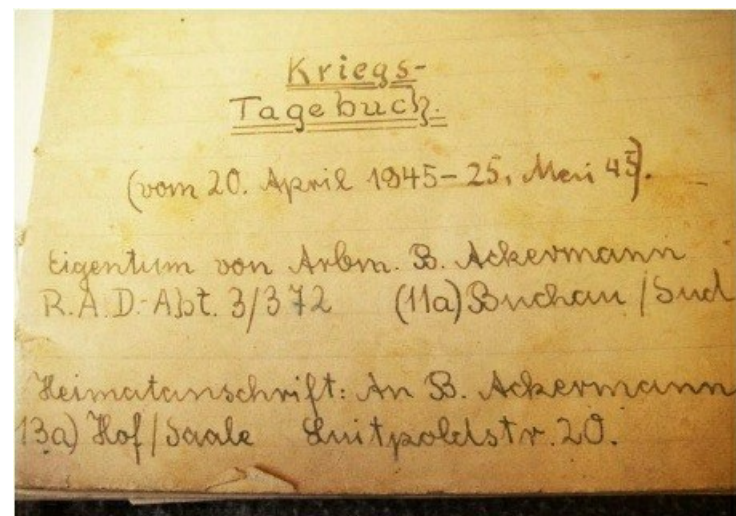 Kriegs-
Tagebuch.
(vom 20. April 1945-25. Mai 45).
Eigentum von Arbm. B. Ackermann
R.A.D.-Abt. 3/372 (11a) Buchau/Sud
Heimatanschrift: An B. Ackermann
13a) Hof/Saale Luitpoldstr. 20.